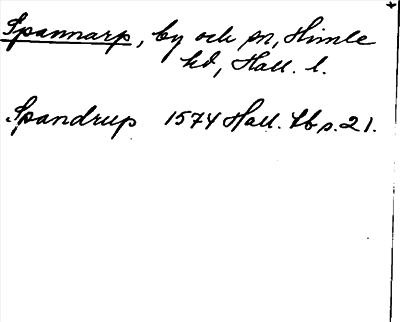 Spannarp, by och sn, Himle
hd, Hall. l.
Spandrup 1574 Hall. Hb s. 21.